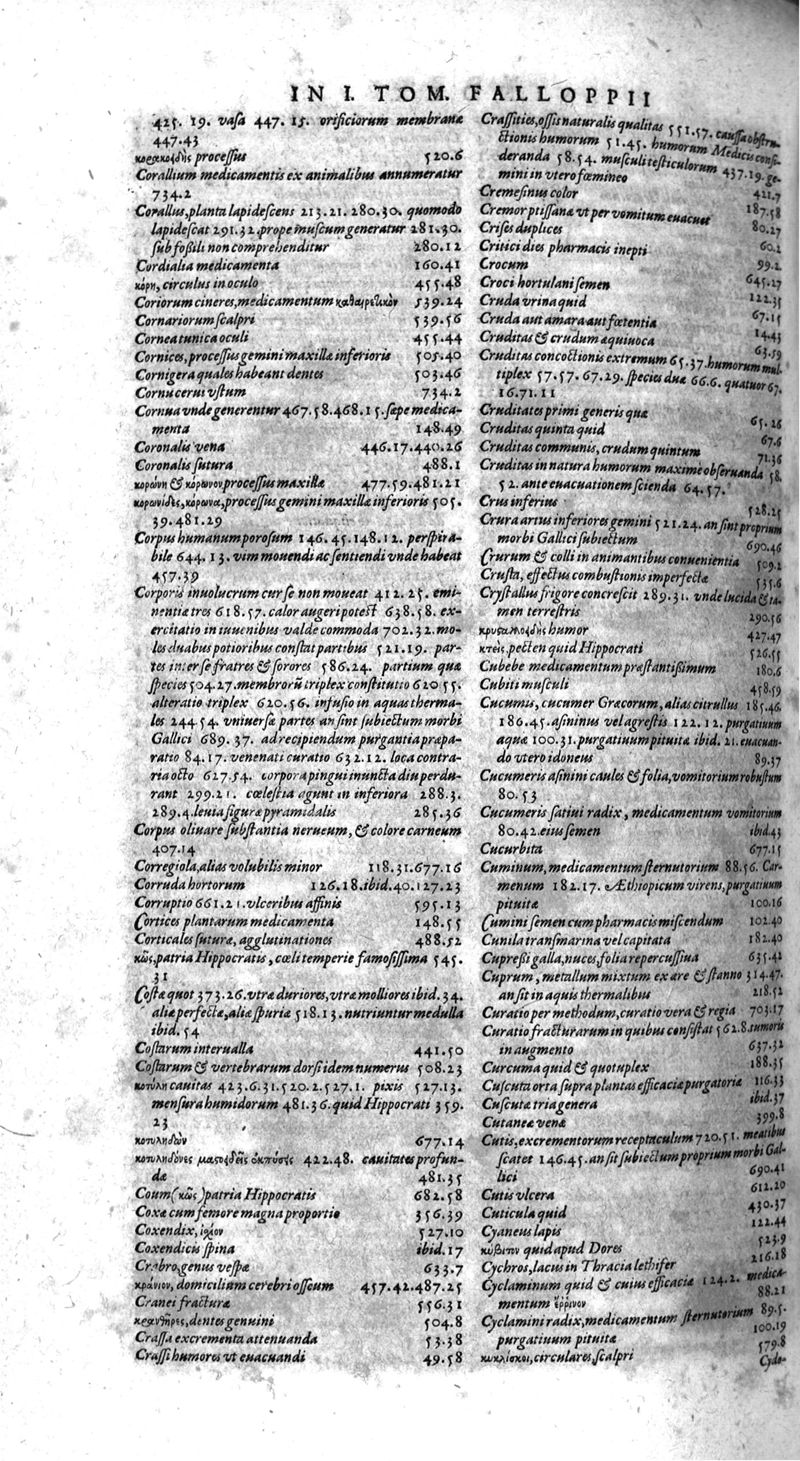 IN I. TOM. FALLOPPII
425. 19. vasa 447. 15. orificiorum membranæ
447.43
κορακοειδὴς processus 520.6
Corallium medicamentis ex animalibus annumeratur
734.2
Corallus, planta lapidescens 213.21. 280.30. quomodo
lapidescat 291.32. prope muscum generatur 281.30.
sub fossili non comprehenditur 280.12
Cordialia medicamenta 160.41
κόρη, circulus in oculo 455.48
Coriorum cineres, medicamentum καθαιρετικὸν 539.24
Cornariorum scalpri 539.56
Cornea tunica oculi 455.44
Cornices, processus gemini maxillæ inferioris 505.40
Cornigera quales habeant dentes 503.46
Cornu cerui vstum 734.2
Cornua vnde generentur 467.58.468.15. sæpe medica-
menta 148.49
Coronalis vena 446.17.440.26
Coronalis sutura 488.1
κορώνη & κόρωνον processus maxillæ 477.59.481.21
κορωνίδες, κόρωνα, processus gemini maxillæ inferioris 505.
39.481.29
Corpus humanum porosum 146.45.148.12. perspira-
bile 644.13. vim mouendi ac sentiendi vnde habeat
457.39
Corporis inuolucrum cur se non moueat 412.25. emi-
nentiæ tres 618.57. calor augeri potest 638.58. ex-
ercitatio in iuuenibus valde commoda 702.32. mo-
les duabus potioribus constat partibus 521.19. par-
tes inter se fratres & sorores 586.24. partium quæ
species 504.27. membrorũ triplex constitutio 620 55.
alteratio triplex 620.56. infusio in aquas therma-
les 244.54. vniuersæ partes an sint subiectum morbi
Gallici 689.37. ad recipiendum purgantia præpa-
ratio 84.17. venenati curatio 632.12. loca contra-
ria octo 627.54. corpora pingui inuncta diu perdu-
rant 299.21. cœlestia agunt in inferiora 288.3.
289.4. leuia figuræ pyramidalis 285.36
Corpus oliuare substantia nerueum, & colore carneum
407.14
Corregiola, alias volubilis minor 118.31.677.16
Corruda hortorum 126.18.ibid.40.127.23
Corruptio 661.21. vlceribus affinis 595.13
Cortices plantarum medicamenta 148.55
Corticales suturæ, agglutinationes 488.52
κῶς, patria Hippocratis, cœli temperie famosissima 545.
31
Costæ quot 373.26. vtræ duriores, vtræ molliores ibid.34.
aliæ perfectæ, aliæ spuriæ 518.13. nutriuntur medulla
ibid. 54
Costarum interualla 441.50
Costarum & vertebrarum dorsi idem numerus 508.23
κοτύλη cauitas 423.6.31.520.2.527.1. pixis 527.13.
mensura humidorum 481.36. quid Hippocrati 359.
23
κοτυληδὼν 677.14
κοτυληδόνες 422.48. cauitates profun-
dæ 481.35
Coum (κῶς) patria Hippocratis 682.58
Coxæ cum femore magna proportio 356.39
Coxendix, ἰχίον 527.10
Coxendicis spina ibid.17
Crabro, genus vespæ 633.7
κράνιον, domicilium cerebri osseum 457.42.487.25
Cranei fractura 556.31
κραντῆρες, dentes genuini 504.8
Crassa excrementa attenuanda 53.38
Crassi humores vt euacuandi 49.58
Crassities, ossis naturalis qualitas 551.57. caussa obstru-
ctionis humorum 51.45. humorum Medicis consi-
deranda 58.54. musculi testiculorum 437.19. ge-
mini in vtero fœmineo 421.7
Cremesinus color 187.58
Cremor ptissanæ vt per vomitum euacuet 80.27
Crises duplices 60.2
Critici dies pharmacis inepti 99.2
Crocum 645.27
Croci hortulani semen 122.35
Cruda vrina quid 67.15
Cruda aut amara aut fœtentia 14.43
Cruditas & crudum æquiuoca 63.59
Cruditas concoctionis extremum 65.37. humorum mul-
tiplex 57.57. 67.29. species duæ 66.6. quatuor 67.
16.71.11
Cruditates primi generis quæ 65.26
Cruditas quinta quid 67.6
Cruditas communis, crudum quintum 71.36
Cruditas in natura humorum maxime obseruanda 58.
52. ante euacuationem scienda 64.57.
Crus inferius 528.25
Crura artus inferiores gemini 521.24. an sint proprium
morbi Gallici subiectum 690.46
Crurum & colli in animantibus conuenientia 509.2
Crusta, effectus combustionis imperfectæ 535.6
Crystallus frigore concrescit 289.31. vnde lucida & ta-
men terrestris 290.56
κρυσταλλοειδὴς humor 427.47
κτείς, pecten quid Hippocrati 526.55
Cubebe medicamentum præstantissimum 180.6
Cubiti musculi 458.59
Cucumis, cucumer Græcorum, alias citrullus 185.46.
186.45. asininus vel agrestis 122.12. purgatiuum
aquæ 100.31. purgatiuum pituitæ ibid. 21. euacuan-
do vtero idoneus 89.37
Cucumeris asinini caules & folia, vomitorium robustum
80.53
Cucumeris satiui radix, medicamentum vomitorium
80.42. eius semen ibid.43
Cucurbita 677.15
Cuminum, medicamentum sternutorium 88.56. Car-
menum 182.17. Æthiopicum virens, purgatiuum
pituitæ 100.16
Cumini semen cum pharmacis miscendum 102.40
Cunila transmarina vel capitata 182.40
Cupressi galla, nuces, folia repercussiua 635.41
Cuprum, metallum mixtum ex ære & stanno 314.47.
an sit in aquis thermalibus 218.52
Curatio per methodum, curatio vera & regia 703.17
Curatio fracturarum in quibus consistat 562.8. tumoris
in augmento 637.32
Curcuma quid & quotuplex 188.35
Cuscuta orta supra plantas efficaciæ purgatoriæ 116.33
Cuscutæ tria genera ibid.37
Cutaneæ venæ 399.8
Cutis, excrementorum receptaculum 720.51. meatibus
scatet 146.45. an sit subiectum proprium morbi Gal-
lici 690.41
Cutis vlcera 612.20
Cuticula quid 430.37
Cyaneus lapis 122.44
κύβιτον quid apud Dores 523.9
Cychros, lacus in Thracia lethifer 216.18
Cyclaminum quid & cuius efficaciæ 124.2. medica-
mentum ἔρρινον 88.21
Cyclamini radix, medicamentum sternutorium 89.5.
purgatiuum pituitæ 100.19
κυκλίσκοι, circulares, scalpri 579.8
Cydo-